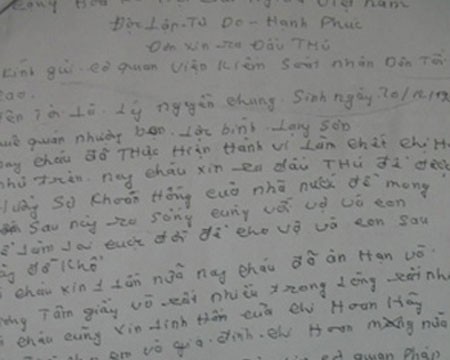 Cộng Hòa Xã Hội Việt Nam
Độc Lập-Tự Do-Hạnh Phúc
Đơn xin ra Đầu THú
Kính gửi cơ quan Viện Kiểm Sát nhân Dân Tối
cao.
Tên Tôi Là Lý nguyễn chung Sinh ngày 20/12/19
quê quán Lộc bình Lạng Sơn
nay cháu đã THực Hiện Hành vi Làm chết chị H
như trên nay cháu xin ra đầu THú để được
Hưởng Sự Khoan Hồng của nhà nước để mong
Sau này ra sống cùng với vợ và con
Làm Lại cuộc đời để cho vợ và con sau
đỡ Khổ
cháu xin 1 Lần nữa nay cháu đã ân Hận vô
Tâm giầy vò rất nhiều trong Lòng rất nh
cháu cũng xin Linh Hồn của chị Hoan Hãy
em và gia đình chị Hoan mong nữa
cơ quan Pháp